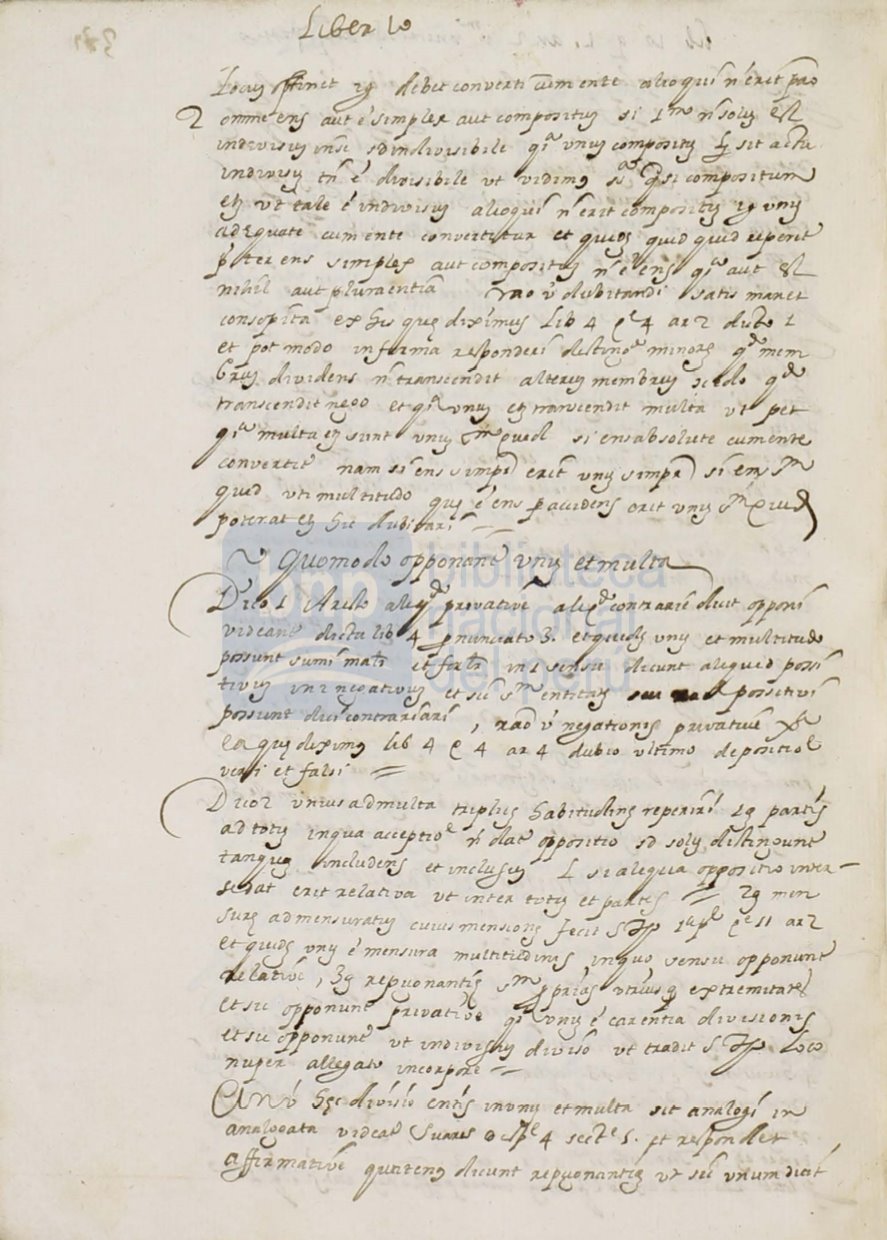 Liber 10
debet converti cum ente alioqui n erit
2 omne ens aut é simplex aut compositũ si 1m n solũ
indivisũ in se sd indivisibile qa unũ compositũ sit actu
indivisũ tn é divisibile ut vidimus si compositum
ut tale é indivisũ alioqui n erit compositũ unũ
adequate cum ente convertitur et quidquid reperit
ter ens simplex aut compositũ n é ens qa aut
nihil aut plura entia rao v dubitandi satis manet
consopita ex his quę diximus Lib 4 qe 4 ar 2 dubio 1
et pot modo in forma responderi disting minorẽ mem
brũ dividens n transcendit alterũ membrũ
transcendit nego et qa unũ transcendit multa ut pet
qa multa sunt unũ sm quid si ens absolute cum ente
convertit nam si ens simpr erit unũ simpr si ens sm
quid uti multitudo quę é ens p accidens erit unũ sm quid
poterat hic dubitari
Quomodo opponant unũ et multa
Dico 1 Aristo aliqdo privative aliqdo contrarie dicit opponi
videant dicta lib 4 pnunciato 3. et quidẽ unũ et multitudo
possunt sumi matr et formr in 1 sensu dicunt aliquid possi
tivũ in 2 negativũ et sic sm entitatẽ possitivi
possunt dici contrarii, rao v negationis privative
ea quę diximus lib 4 q 4 ar 4 dubio ultimo de positioe
veri et falsi
Dico 2 unius ad multa triplicẽ habitudinẽ reperiri 1a partis
ad totũ in qua acceptioe n dat oppositio sd solũ distinguunt
tanquã includens et inclusũ si aliqua oppositio inter
se dat erit relativa ut inter totũ et partẽ 2a men
surę ad mensuratũ cuius mensionẽ fecit S Tho 1a p qe 11 ar 2
et quidẽ unũ é mensura multitudinis in quo sensu opponunt
relative, 3a repugnantis sm pprias utriusq extremitates
et sic opponunt privative qa unũ é carentia divisionis
et sic opponunt ut indivisũ diviso ut tradit S Tho loco
nuper allegato in corpore
An v hęc divisio entis in unũ et multa sit analogi in
analogata videat Suares disp 4 sect 1. et respondet
affirmative quatenus dicunt repugnantiã ut sic unum dicit